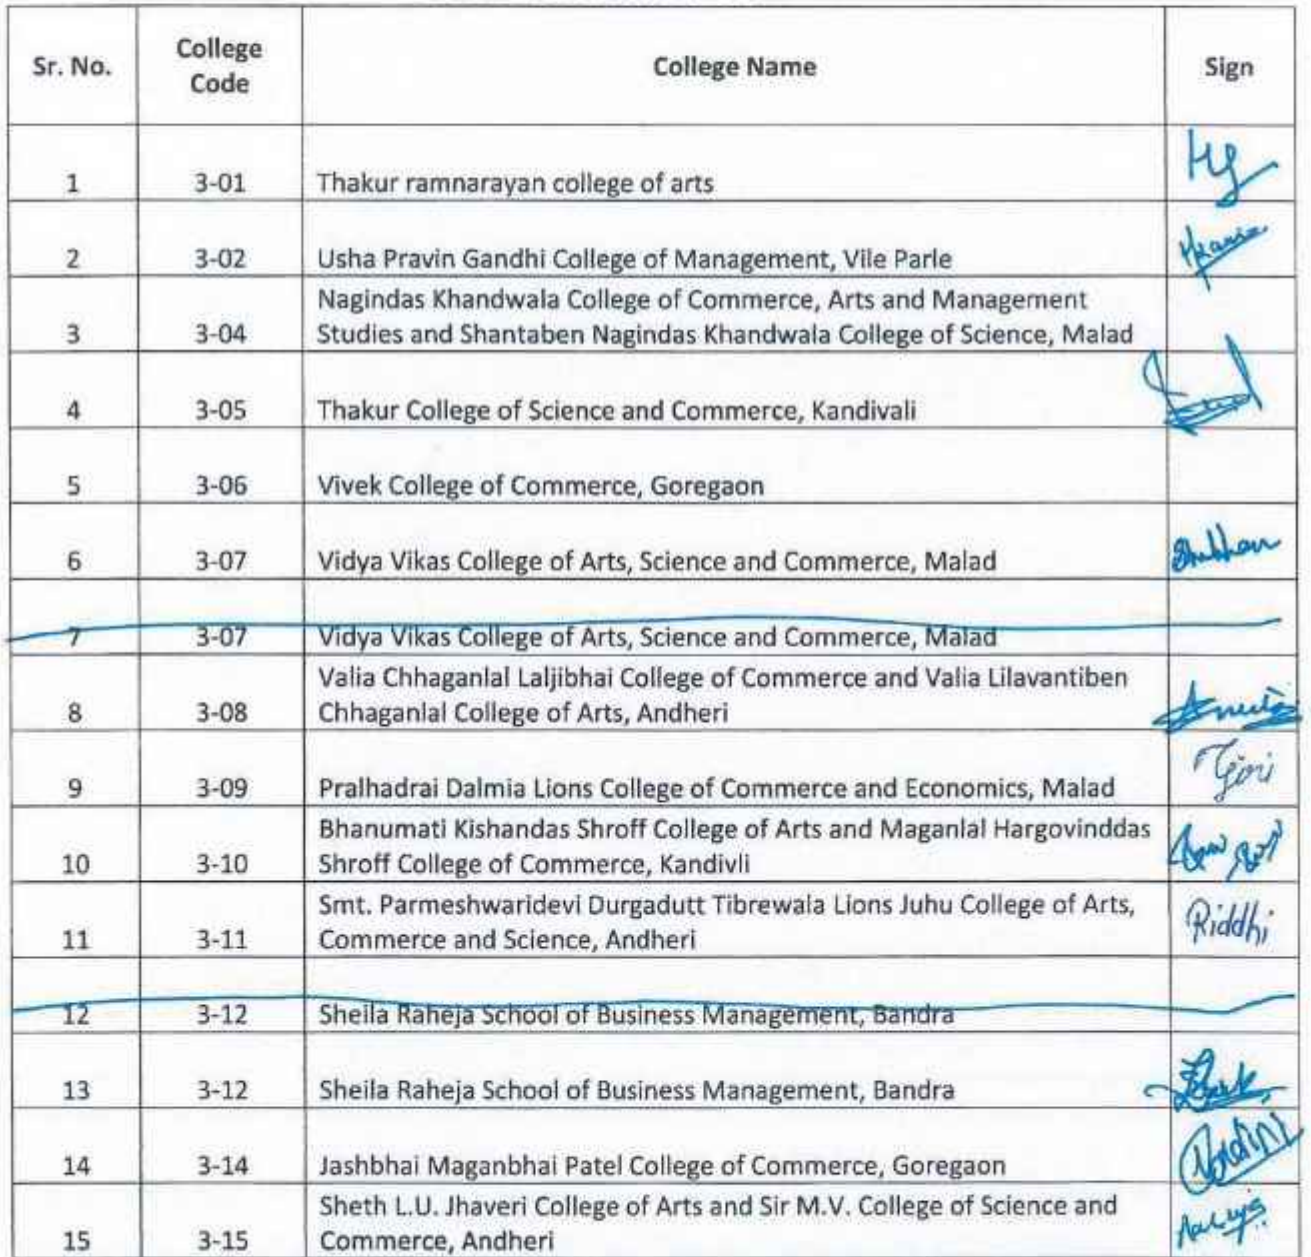 Sr. No. College Code College Name Sign
1 3-01 Thakur ramnarayan college of arts
2 3-02 Usha Pravin Gandhi College of Management, Vile Parle
3 3-04 Nagindas Khandwala College of Commerce, Arts and Management
Studies and Shantaben Nagindas Khandwala College of Science, Malad
4 3-05 Thakur College of Science and Commerce, Kandivali
5 3-06 Vivek College of Commerce, Goregaon
6 3-07 Vidya Vikas College of Arts, Science and Commerce, Malad
7 3-07 Vidya Vikas College of Arts, Science and Commerce, Malad
8 3-08 Valia Chhaganlal Laljibhai College of Commerce and Valia Lilavantiben
Chhaganlal College of Arts, Andheri
9 3-09 Pralhadrai Dalmia Lions College of Commerce and Economics, Malad
10 3-10 Bhanumati Kishandas Shroff College of Arts and Maganlal Hargovinddas
Shroff College of Commerce, Kandivli
11 3-11 Smt. Parmeshwaridevi Durgadutt Tibrewala Lions Juhu College of Arts,
Commerce and Science, Andheri Riddhi
12 3-12 Sheila Raheja School of Business Management, Bandra
13 3-12 Sheila Raheja School of Business Management, Bandra
14 3-14 Jashbhai Maganbhai Patel College of Commerce, Goregaon
15 3-15 Sheth L.U. Jhaveri College of Arts and Sir M.V. College of Science and
Commerce, Andheri